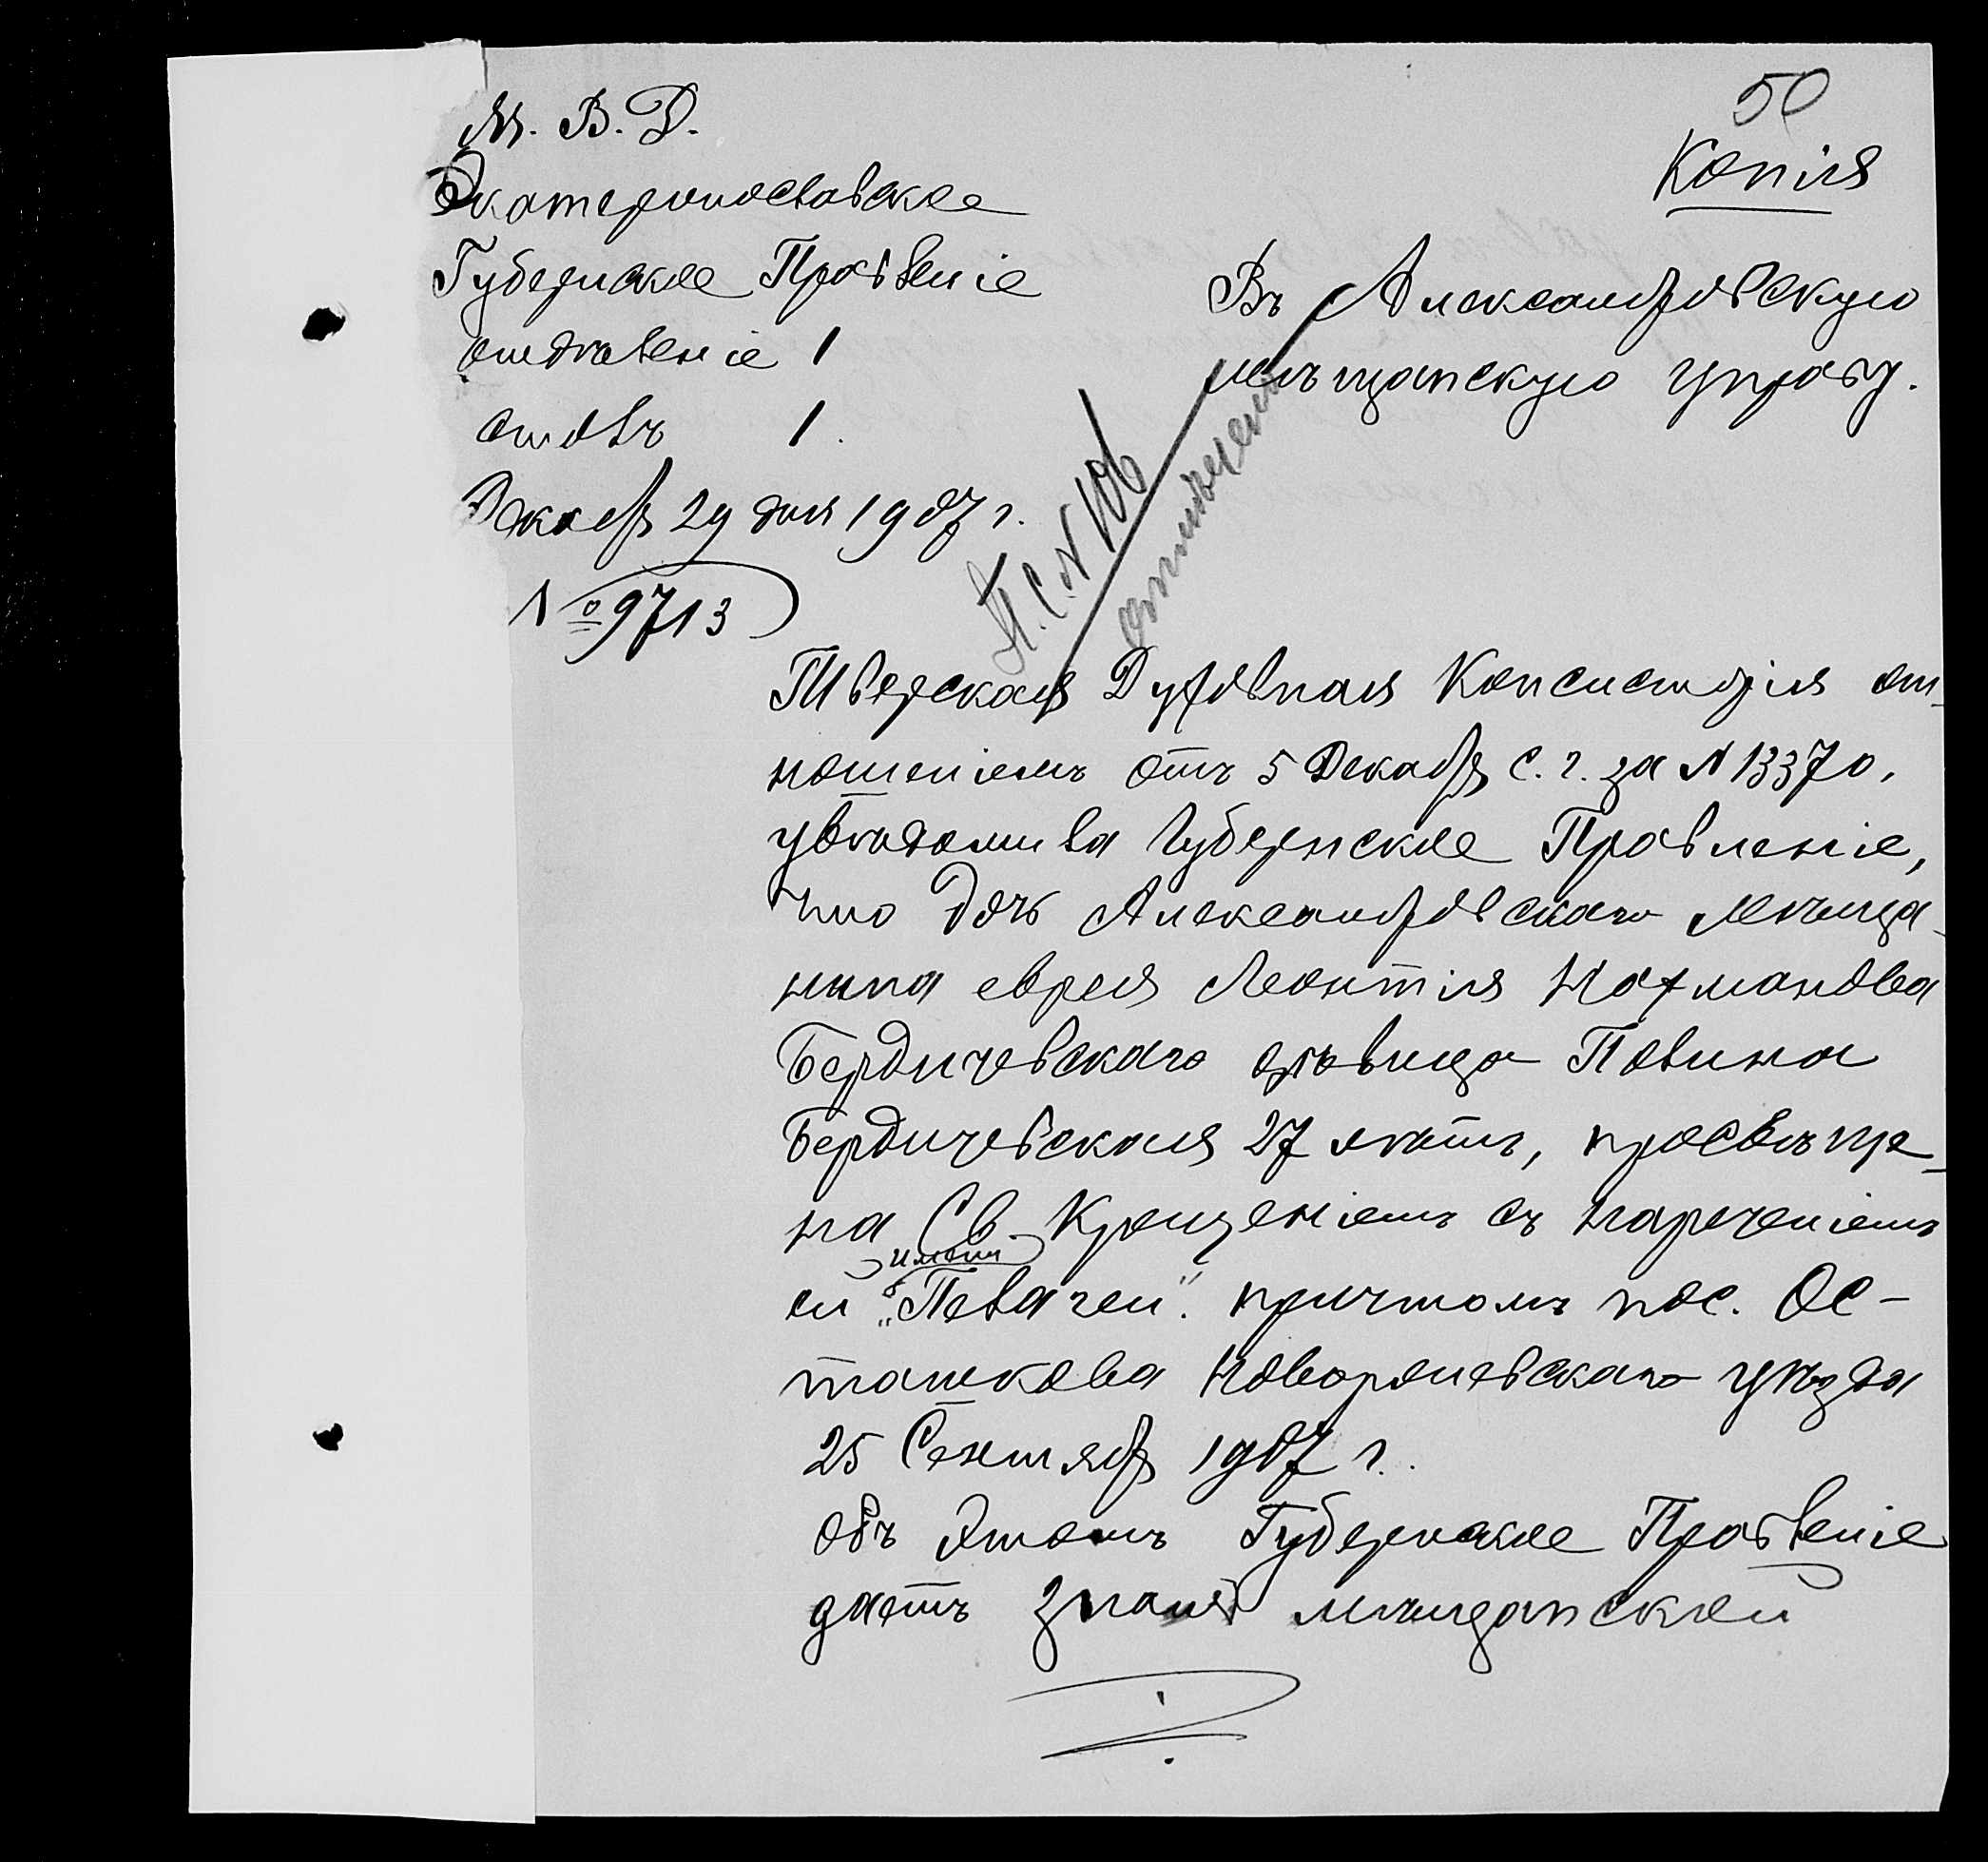 50
Копія
М. В. Д.
Екатеринославское
Губернское Правленіе
отдѣленіе 1
столъ 1.
Декабр 29 дня 1907 г.
№ 9713
Въ Александровскую
мѣщанскую управу.
П. С. № 106
отмѣчено
Тверская Духовная Консисторія от-
ношеніемъ отъ 5 Декабр с. г. за № 13370,
увѣдомила Губернское Правленіе,
что дочь Александровскаго мѣща-
нина еврея Леонтія Нахманова
Бердичевскаго дѣвица Полина
Бердичевская 27 лѣтъ, просвѣще-
на Св. Крещеніемъ съ нареченіемъ
ей имени „Пелагеи“. причтомъ пос. Ос-
ташкова Новоржевскаго уѣзда
25 Сентябр 1907 г.
Объ этомъ Губернское Правленіе
даетъ знать мѣщанской